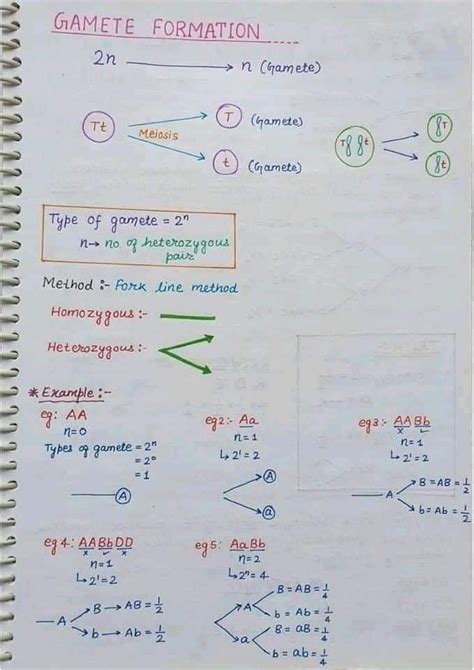 GAMETE FORMATION
2n → n (Gamete)
Tt
Meiosis
T (Gamete)
t (Gamete)
T t
T
t
Type of gamete = 2ⁿ
n → no. of heterozygous
pair
Method :- Fork line method
Homozygous :-
Heterozygous :-
* Example :-
eg: AA
n=0
Types of gamete = 2ⁿ
= 2⁰
= 1
A
eg2:- Aa
n=1
↳ 2¹ = 2
A
a
eg3:- AABb
x ✓
n=1
↳ 2¹ = 2
A
B = AB = 1/2
b = Ab = 1/2
eg4: AABbDD
x ✓ x
n=1
↳ 2¹ = 2
A
B → AB = 1/2
b → Ab = 1/2
eg5: AaBb
n=2
↳ 2ⁿ = 4
A
B = AB = 1/4
b = Ab = 1/4
a
B = aB = 1/4
b = ab = 1/4